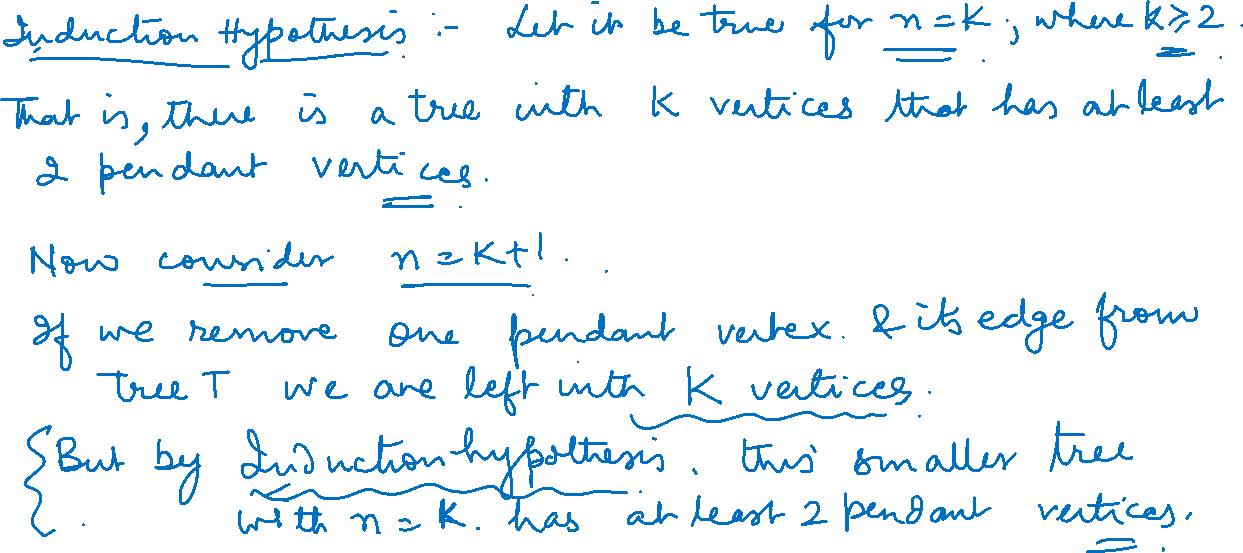 Induction Hypothesis :- Let it be true for n = K ; where k ≥ 2.
That is, there is a tree with K vertices that has at least
2 pendant vertices.
Now consider n = K+1.
If we remove one pendant vertex. & its edge from
tree T we are left with K vertices.
{ But by Induction hypothesis, this smaller tree
with n = K. has at least 2 pendant vertices.